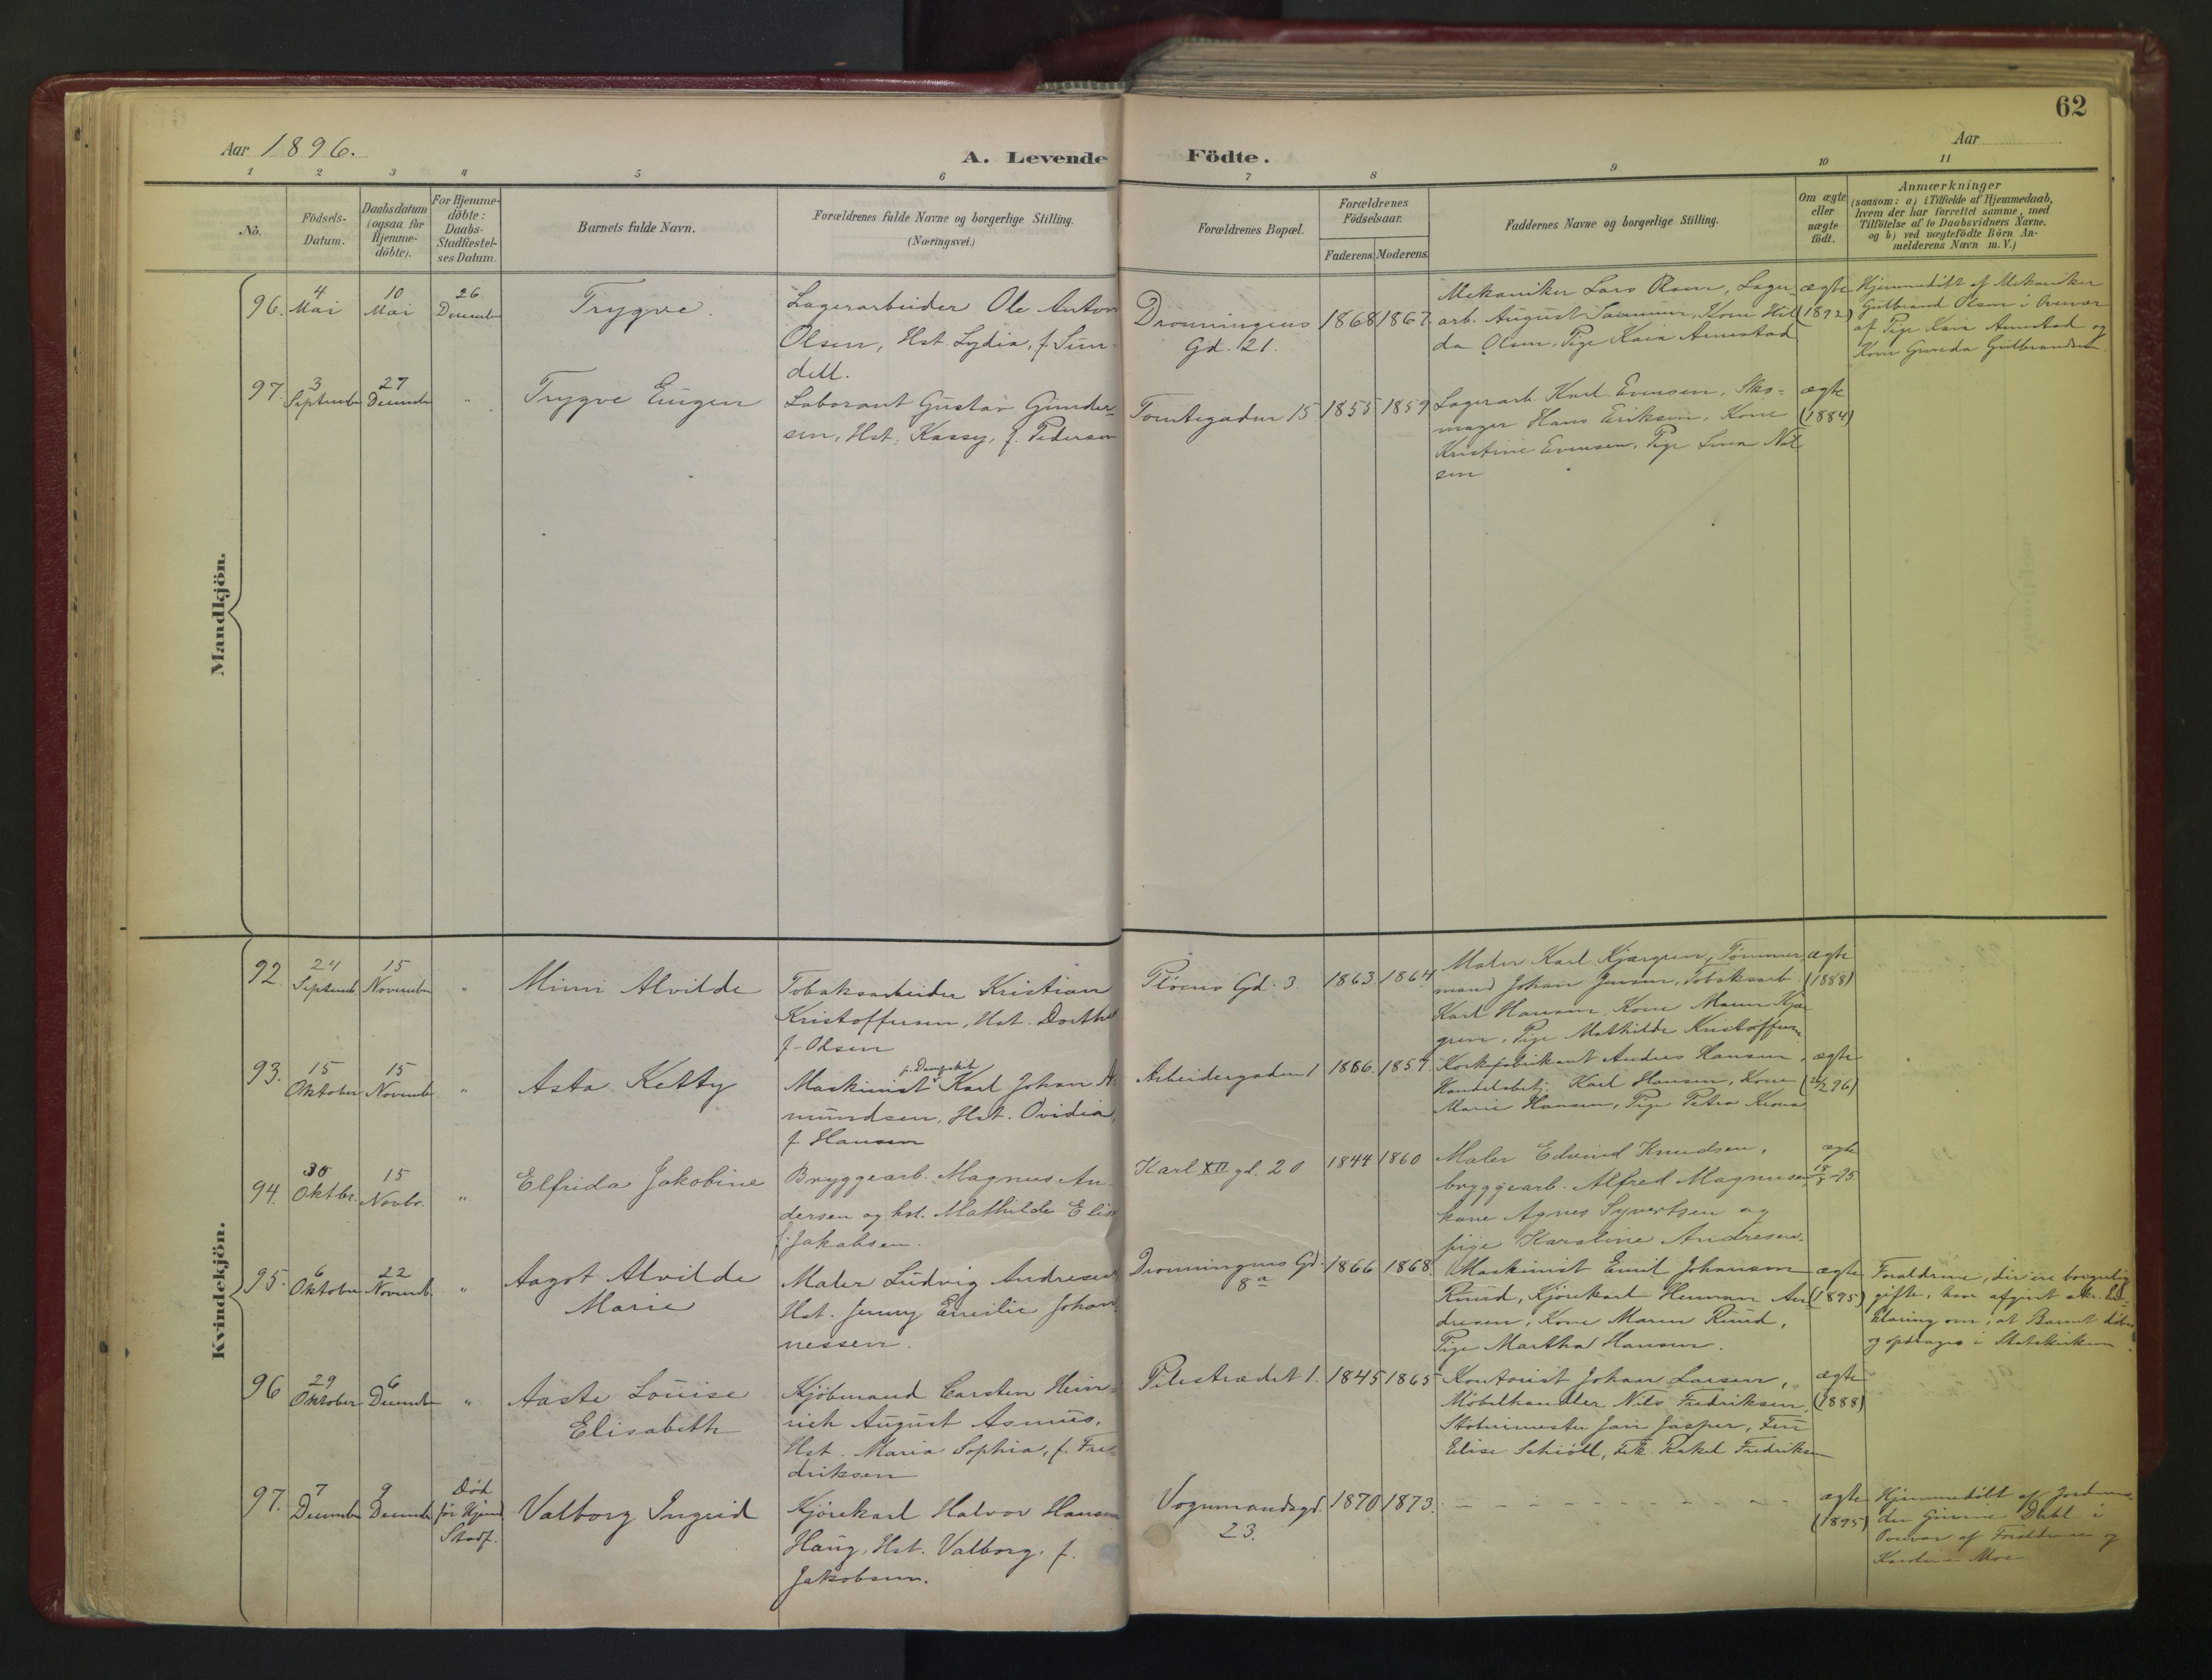 62
Aar 1896.
A. Levende Födte.
Aar
1 2 3 4 5 6 7 8 9 10 11
No.
Födsels-
Datum.
Daabsdatum
(ogsaa for
Hjemme-
döbte).
For Hjemme-
döbte:
Daabs-
Stadfæstel-
ses Datum.
Barnets fulde Navn.
Forældrenes fulde Navne og borgerlige Stilling.
(Næringsvei.)
Forældrenes Bopæl.
Forældrenes
Födselsaar.
Faderens. Moderens.
Faddernes Navne og borgerlige Stilling.
Om ægte
eller
uægte
födt.
Anmærkninger
(saasom: a) i Tilfælde af Hjemmedaab,
hvem der har forrettet samme, med
Tilföielse af to Daabsvidners Navne,
og b) ved uægtefödte Börn An-
melderens Navn m. V.)
Mandkjön.
96.
4
Mai
10
Mai
26
Decembr
Trygve.
Lagerarbeider Ole Anton
Olsen, Hst. Lydia, f. Sun-
dell.
Dronningens
Gd. 21.
1868 1867.
Mekaniker Lars Olsen, Lager
arb. August Kone Hil
da Olsen, Pige Kaia Arnestad
ægte
(1892)
Hjemmedöbt af Mekaniker
Gulbrand Olsen i Overvær
af Pige Kaia Arnestad og
Kone Gunda Gulbrandsen.
97.
3
Septembr
27
Decembr
"
Trygve Eugen
Laborant Gustav Gunder-
sen, Hst. Kassy, f. Pedersen
Tomtegaden 15
1855 1859
Lagerarb. Karl Evensen, Sko-
mager Hans Eriksen, Kone
Kristine Evensen, Pige Lina Nil
sen
ægte
(1884)
Kvindekjön.
92.
24
Septemb.
15
Novembr
"
Mimi Alvilde
Tobaksarbeider Kristian
Kristoffersen, Hst. Dorthe
f. Olsen
Pløens Gd. 3.
1863. 1864
Maler Karl Kjærgren, Tømmer
mand Johan Jensen, Tobaksarb.
Karl Hansen, Kone Maren Kjær
gren, Pige Mathilde Kristoffersen
ægte
(1888)
93.
15
Oktober
15
Novembr
"
Asta Ketty
Maskinist Karl Johan A-
mundsen, Hst. Ovidia,
f. Hansen
Arbeidergaden 1
1866. 1857.
Korkfabrikant Anders Hansen,
Handelsbetj. Karl Hansen, Kone
Marie Hansen, Pige Petra
ægte
94.
30
Oktbr.
15
Novbr.
"
Elfrida Jakobine
Bryggearb. Magnus An-
dersen og hst. Mathilde Elise
f. Jakobsen.
Karl XII gd. 20
1844 1860
Maler Edvind Knudsen,
bryggearb. Alfred Magnussen,
kone Agnes Syvertsen og
pige Karoline Andresen.
ægte
95.
6
Oktober
22
Novemb.
"
Aagot Alvilde
Marie
Maler Ludvig Andresen
Hst. Jenny Emilie Johan
nessen.
Dronningens Gd.
8a
1866 1868.
Maskinist Emil Johansen
Ruud, Kjørekarl Herman An
dresen, Kone Maren Ruud,
Pige Martha Hansen.
ægte
(1895)
Forældrene, der ere borgerlig
gifte, har afgivet skr. Er-
klæring om, at Barnet døbes
og opdrages i Statskirken.
96
29
Oktober
6
Decembr
"
Aaste Louise
Elisabeth
Kjöbmand Carsten Hein-
rich August Asmus,
Hst. Maria Sophia, f. Fre-
driksen
Pilestrædet 1.
1845 1865
Kontorist Johan Larsen,
Möbelhandler Nils Fredriksen,
Jan Jasper, Fru
Elise Schiöll, Frk. Rakel Fredriksen
ægte
(1888)
97.
7
Decembr
9
Decembr
Död
før Hjem
Stadf.
Valborg Ingrid
Kjørekarl Halvor Hansen
Haug, Hst. Valborg, f.
Jakobsen.
Vognmandsgd.
23.
1870 1873.
- - - - - - - - - - -
ægte
(1895)
Hjemmedöbt af Jordmo-
der Dahl i
Overvær af Forældrene og
Moe